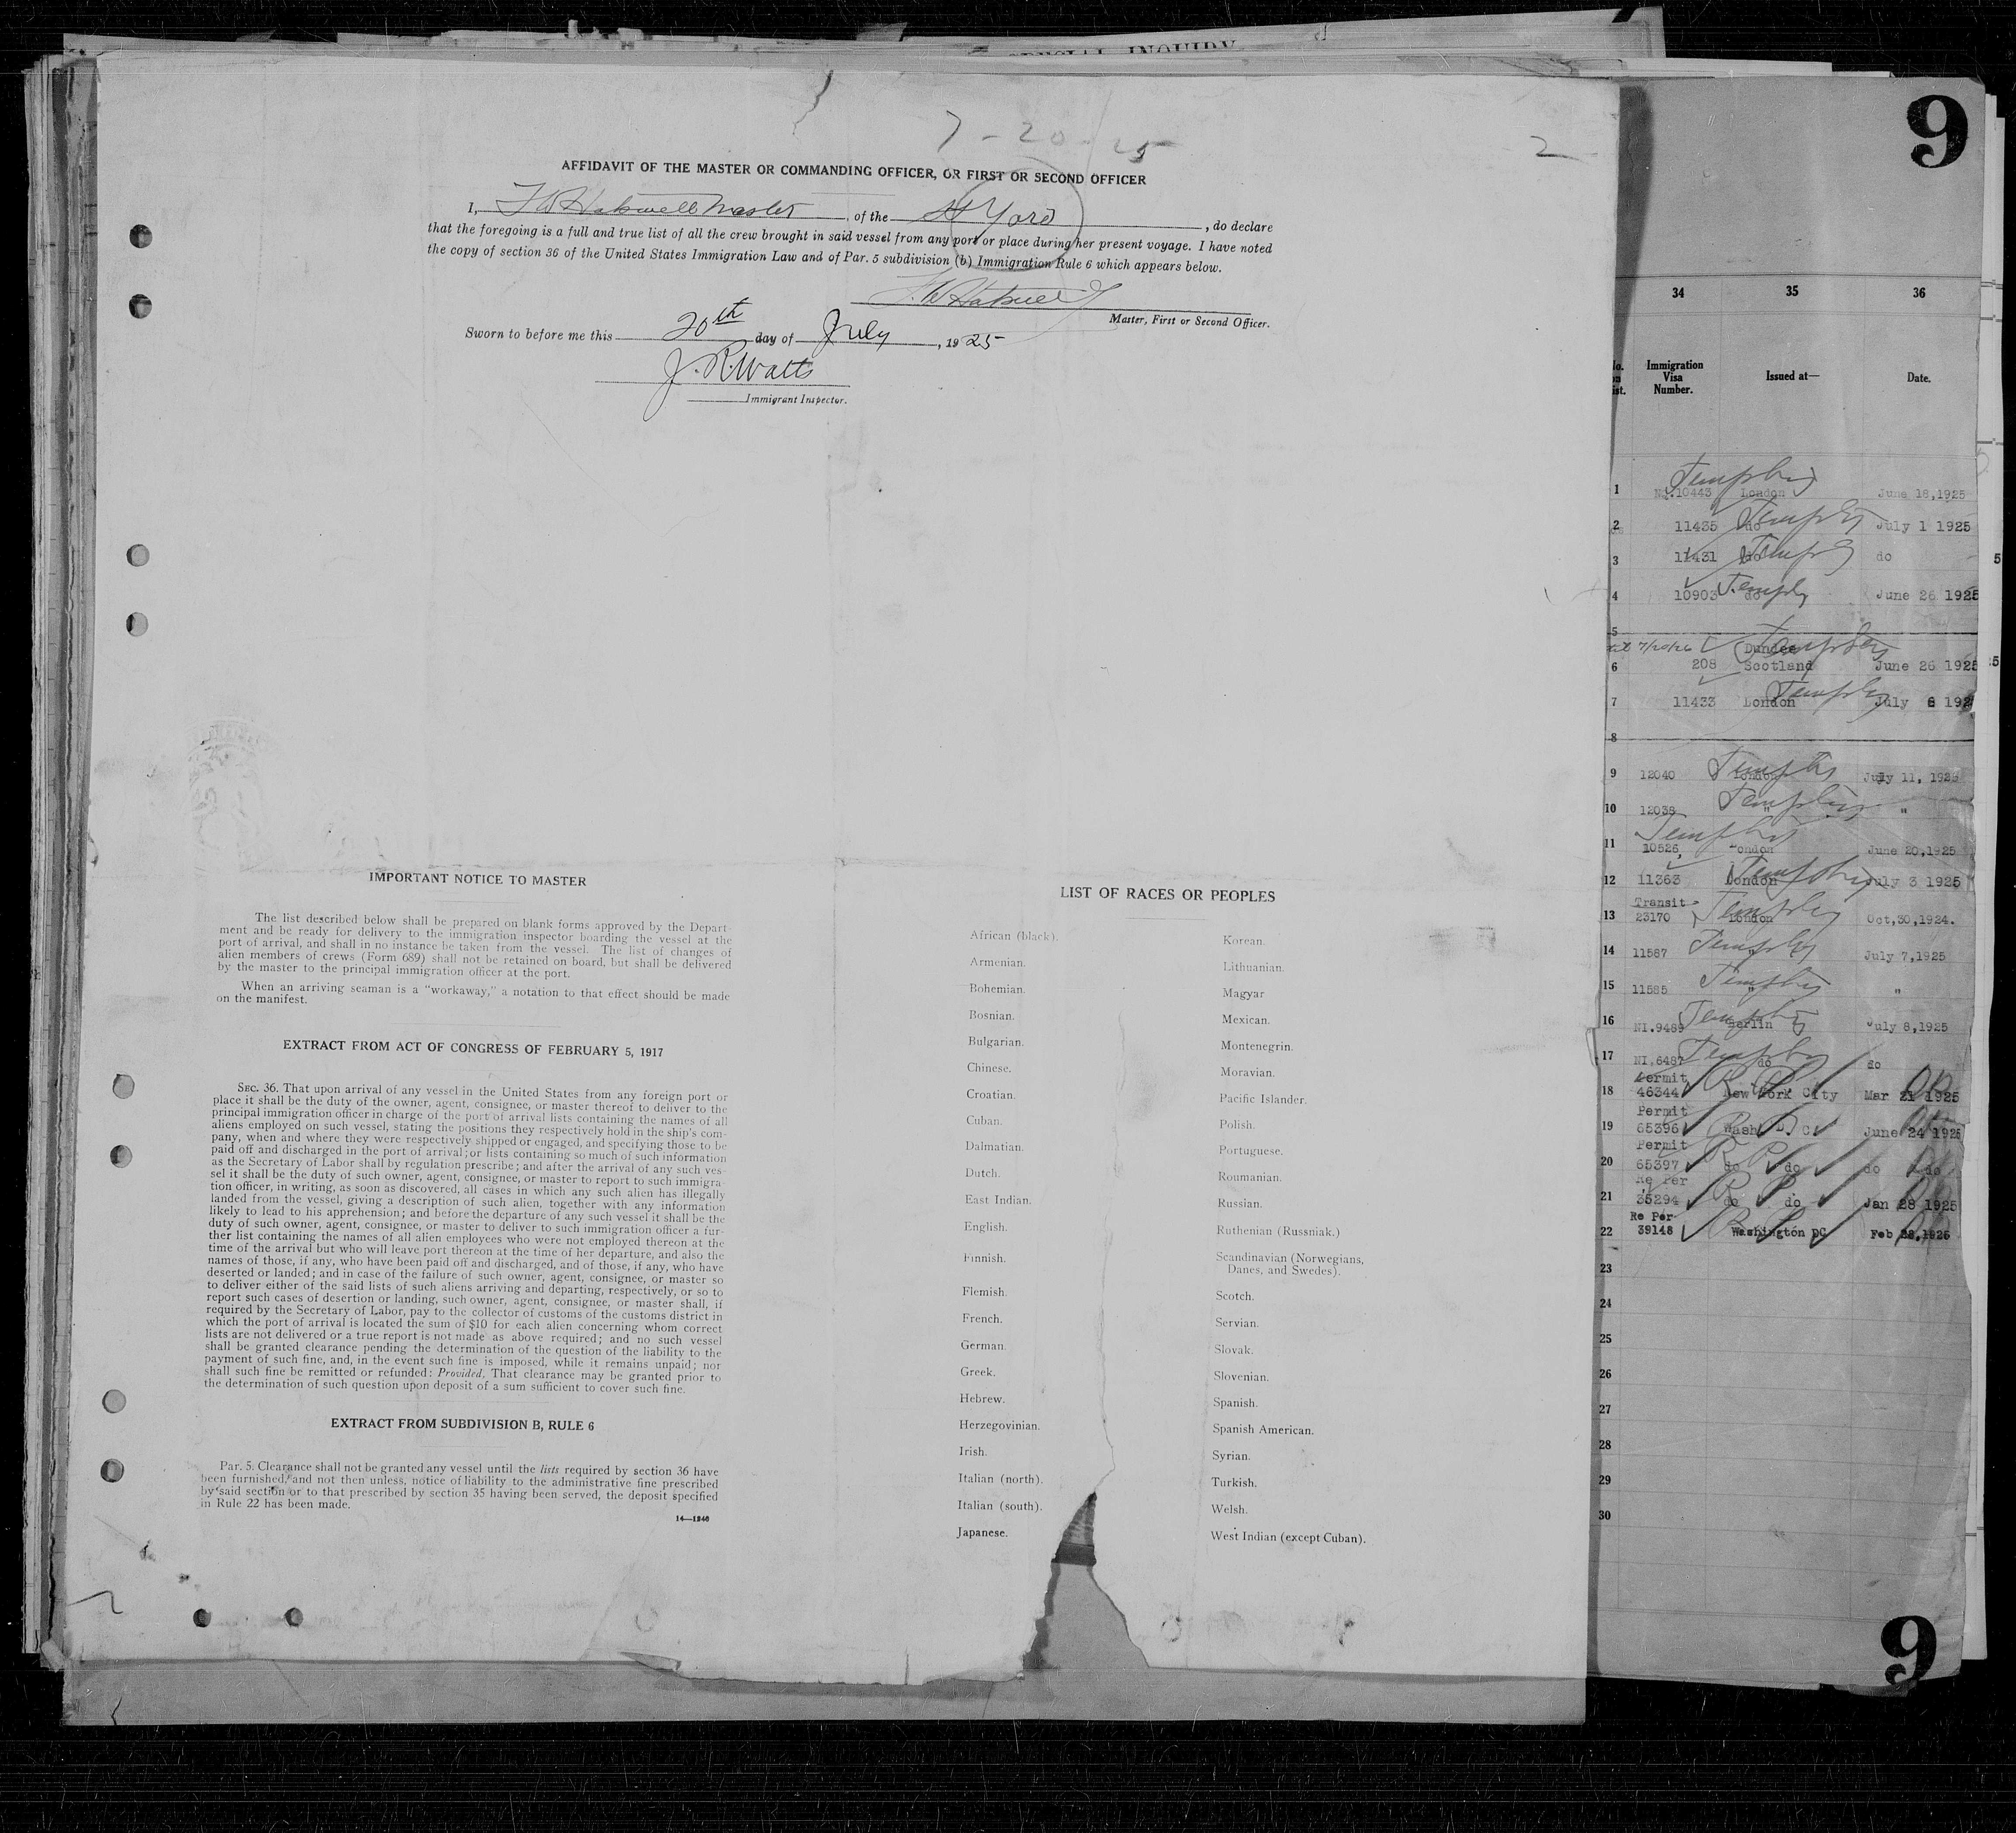 SPECIAL INQUIRY
9
7-20-25
2
AFFIDAVIT OF THE MASTER OR COMMANDING OFFICER, OR FIRST OR SECOND OFFICER
I, Master, of the , do declare
that the foregoing is a full and true list of all the crew brought in said vessel from any port or place during her present voyage. I have noted
the copy of section 36 of the United States Immigration Law and of Par. 5 subdivision (b) Immigration Rule 6 which appears below.
Master, First or Second Officer.
Sworn to before me this 20th day of July, 1925
J. R. Watts
Immigrant Inspector.
IMPORTANT NOTICE TO MASTER
The list described below shall be prepared on blank forms approved by the Depart-
ment and be ready for delivery to the immigration inspector boarding the vessel at the
port of arrival, and shall in no instance be taken from the vessel. The list of changes of
alien members of crews (Form 689) shall not be retained on board, but shall be delivered
by the master to the principal immigration officer at the port.
When an arriving seaman is a "workaway," a notation to that effect should be made
on the manifest.
EXTRACT FROM ACT OF CONGRESS OF FEBRUARY 5, 1917
SEC. 36. That upon arrival of any vessel in the United States from any foreign port or
place it shall be the duty of the owner, agent, consignee, or master thereof to deliver to the
principal immigration officer in charge of the port of arrival lists containing the names of all
aliens employed on such vessel, stating the positions they respectively hold in the ship's com-
pany, when and where they were respectively shipped or engaged, and specifying those to be
paid off and discharged in the port of arrival; or lists containing so much of such information
as the Secretary of Labor shall by regulation prescribe; and after the arrival of any such ves-
sel it shall be the duty of such owner, agent, consignee, or master to report to such immigra-
tion officer, in writing, as soon as discovered, all cases in which any such alien has illegally
landed from the vessel, giving a description of such alien, together with any information
likely to lead to his apprehension; and before the departure of any such vessel it shall be the
duty of such owner, agent, consignee, or master to deliver to such immigration officer a fur-
ther list containing the names of all alien employees who were not employed thereon at the
time of the arrival but who will leave port thereon at the time of her departure, and also the
names of those, if any, who have been paid off and discharged, and of those, if any, who have
deserted or landed; and in case of the failure of such owner, agent, consignee, or master so
to deliver either of the said lists of such aliens arriving and departing, respectively, or so to
report such cases of desertion or landing, such owner, agent, consignee, or master shall, if
required by the Secretary of Labor, pay to the collector of customs of the customs district in
which the port of arrival is located the sum of $10 for each alien concerning whom correct
lists are not delivered or a true report is not made as above required; and no such vessel
shall be granted clearance pending the determination of the question of the liability to the
payment of such fine, and, in the event such fine is imposed, while it remains unpaid; nor
shall such fine be remitted or refunded: Provided, That clearance may be granted prior to
the determination of such question upon deposit of a sum sufficient to cover such fine.
EXTRACT FROM SUBDIVISION B, RULE 6
Par. 5. Clearance shall not be granted any vessel until the lists required by section 36 have
been furnished, and not then unless, notice of liability to the administrative fine prescribed
by said section or to that prescribed by section 35 having been served, the deposit specified
in Rule 22 has been made.
14—1946
LIST OF RACES OR PEOPLES
African (black).
Armenian.
Bohemian.
Bosnian.
Bulgarian.
Chinese.
Croatian.
Cuban.
Dalmatian.
Dutch.
East Indian.
English.
Finnish.
Flemish.
French.
German.
Greek.
Hebrew.
Herzegovinian.
Irish.
Italian (north).
Italian (south).
Japanese.
Korean.
Lithuanian.
Magyar
Mexican.
Montenegrin.
Moravian.
Pacific Islander.
Polish.
Portuguese.
Roumanian.
Russian.
Ruthenian (Russniak.)
Scandinavian (Norwegians,
Danes, and Swedes).
Scotch.
Servian.
Slovak.
Slovenian.
Spanish.
Spanish American.
Syrian.
Turkish.
Welsh.
West Indian (except Cuban).
34 35 36
Immigration Visa Number. Issued at— Date.
1 10443 London June 18,1925
2 11435 do July 1 1925
3 11431 do do
4 10903 do June 26 1925
5
Dundee
6 208 Scotland June 26 1925
7 11433 London July 192
8
9 12040 London July 11, 192
10 12038 " "
11 10526 London June 20,1925
12 11363 London July 3 1925
Transit
13 23170 London Oct,30,1924.
14 11587 " July 7,1925
15 11585 " "
16 NI.9489 Berlin July 8,1925
17 NI.6487 do do
Permit
18 46344 New York City Mar 21 1925
Permit
19 65396 Wash D. C. June 24 1925
Permit
20 65397 do do do do
Re Per
21 35294 do do Jan 28 1925
Re Per
22 39148 Washington DC Feb 1925
23
24
25
26
27
28
29
30
9